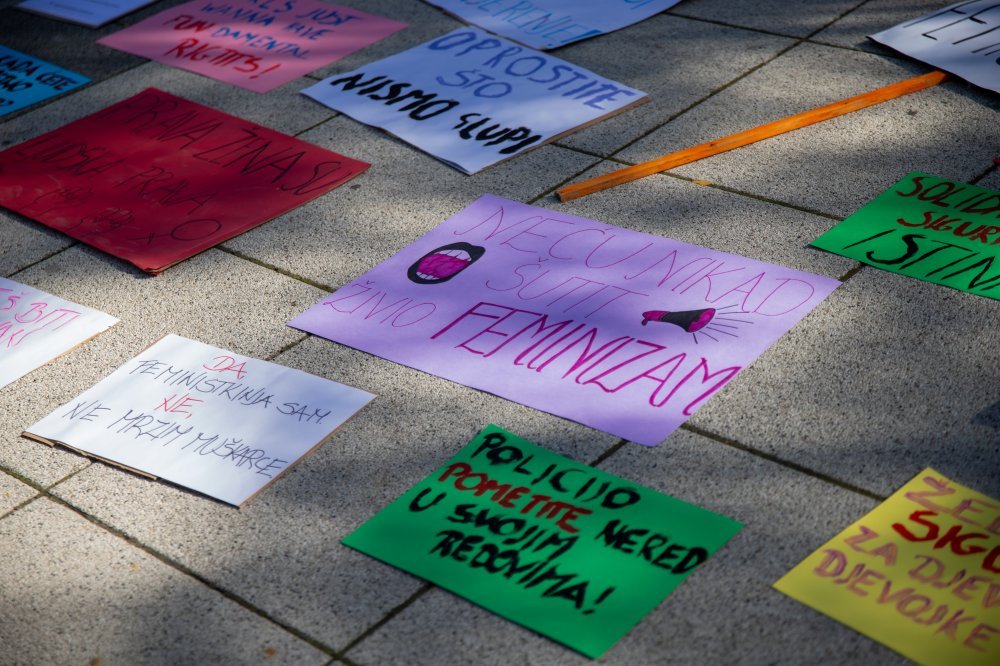 WANNA HAVE
FUNDAMENTAL
RIGHTS!
OPROSTITE
ŠTO
NISMO GLUPE
PRAVA ŽENA SU
LJUDSKA PRAVA
SOLIDA
SIGUR
ISTIN
NEĆU NIKAD
ŠUTIT
ŽIVIO FEMINIZAM
BITI
DA,
FEMINISTKINJA SAM.
NE,
NE MRZIM MUŠKARCE
POLICIJO
POMETITE NERED
U SVOJIM
REDOVIMA!
ŽE
SIGU
ZA DJEV
DJEVOJKE